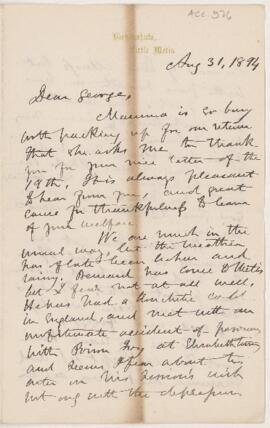 ACC. 526
Little Metis
Aug 31, 1894
Dear George,
Mamma is so busy
with packing up for our return
that she asks me to thank
you for your nice letter of the
18th. It is always pleasant
to hear from you, and great
cause for thankfulness to learn
of your welfare
We are much in the
usual way, but the weather
has of late been and
rainy. Bernard has come to Metis
but I fear not at all well.
He has had a cold
in England, and met with an
unfortunate accident of poisoning
with Poison Ivy, at Elizabethtown
and seems I fear about to
enter on his Session's work
not only with the depression